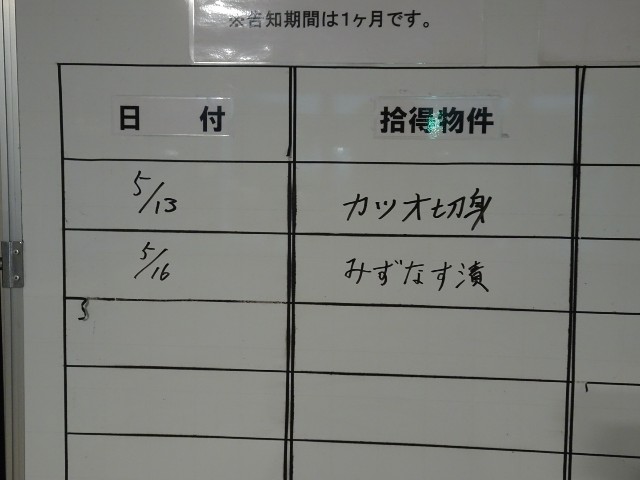 ※告知期間は1ヶ月です。
日 付 拾得物件
5/13 カツオ切身
5/16 みずなす漬